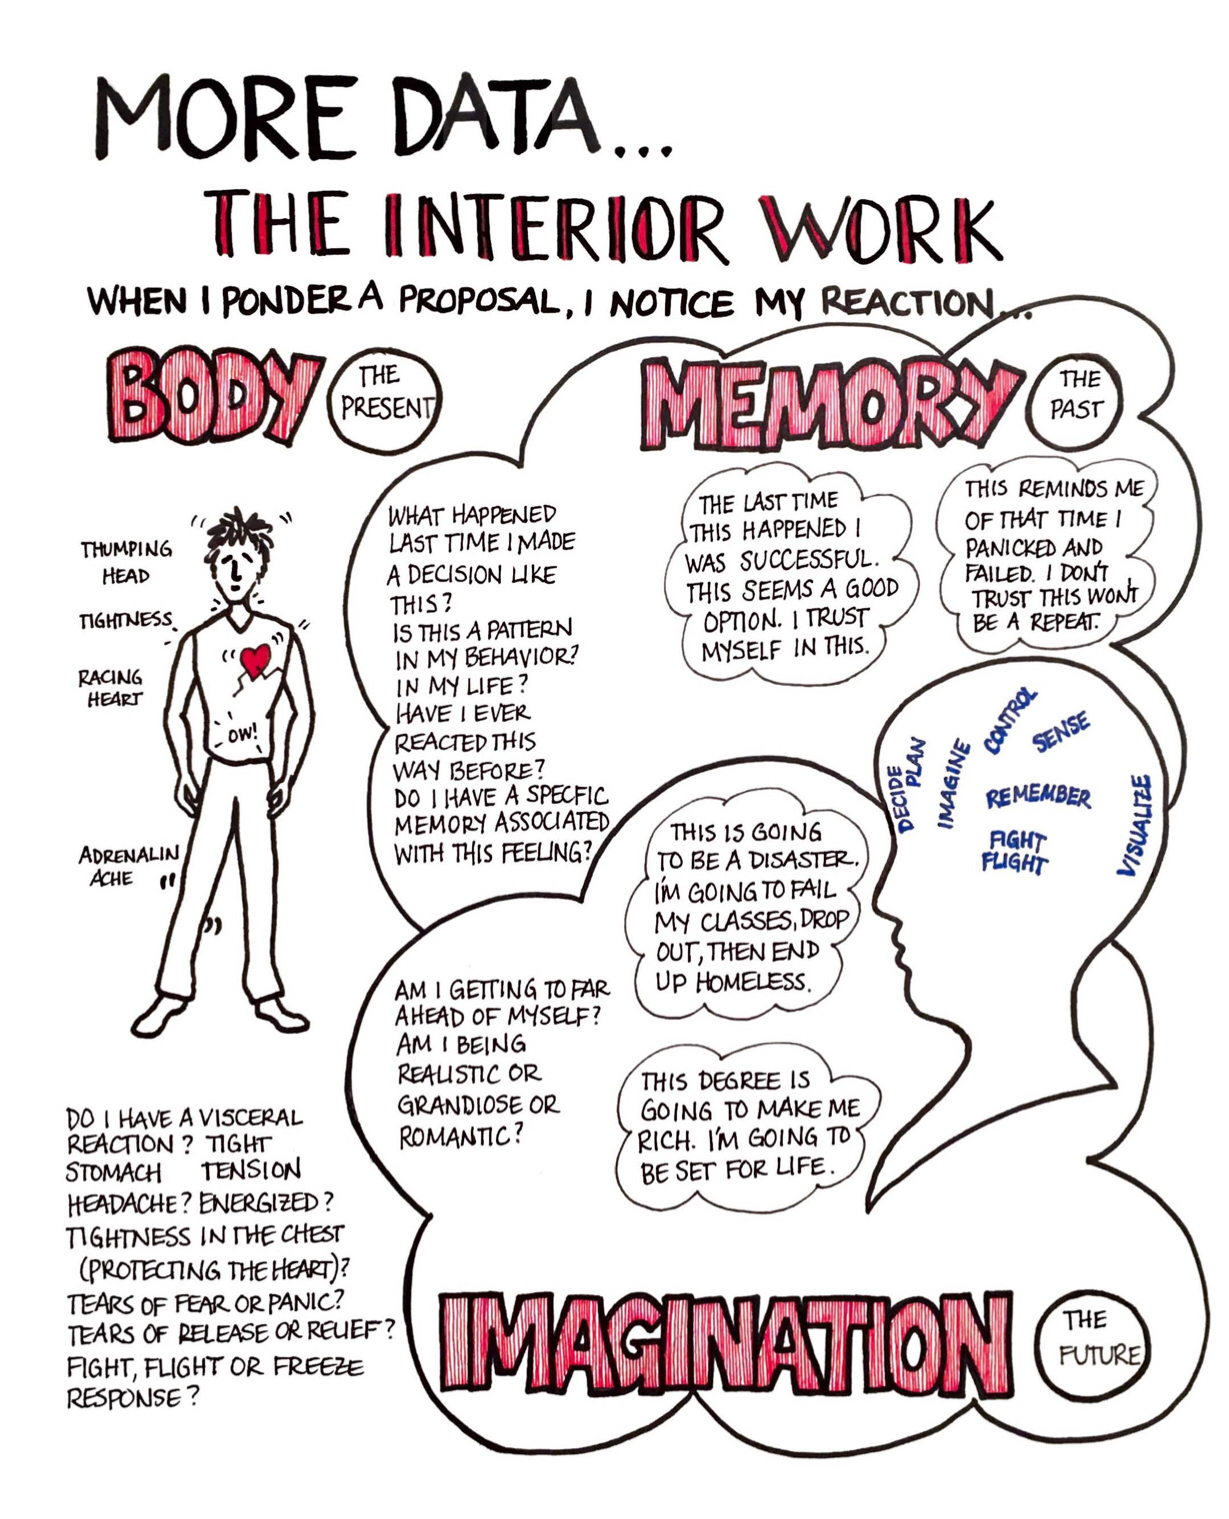 MORE DATA...
THE INTERIOR WORK
WHEN I PONDER A PROPOSAL, I NOTICE MY REACTION...
BODY
THE
PRESENT
THUMPING
HEAD
TIGHTNESS
RACING
HEART
OW!
ADRENALIN
ACHE
DO I HAVE A VISCERAL
REACTION? TIGHT
STOMACH TENSION
HEADACHE? ENERGIZED?
TIGHTNESS IN THE CHEST
(PROTECTING THE HEART)?
TEARS OF FEAR OR PANIC?
TEARS OF RELEASE OR RELIEF?
FIGHT, FLIGHT OR FREEZE
RESPONSE?
MEMORY
THE
PAST
WHAT HAPPENED
LAST TIME I MADE
A DECISION LIKE
THIS?
IS THIS A PATTERN
IN MY BEHAVIOR?
IN MY LIFE?
HAVE I EVER
REACTED THIS
WAY BEFORE?
DO I HAVE A SPECFIC
MEMORY ASSOCIATED
WITH THIS FEELING?
THE LAST TIME
THIS HAPPENED I
WAS SUCCESSFUL.
THIS SEEMS A GOOD
OPTION. I TRUST
MYSELF IN THIS.
THIS REMINDS ME
OF THAT TIME I
PANICKED AND
FAILED. I DON'T
TRUST THIS WON'T
BE A REPEAT.
DECIDE
PLAN
IMAGINE
CONTROL
SENSE
REMEMBER
FIGHT
FLIGHT
VISUALIZE
THIS IS GOING
TO BE A DISASTER.
I'M GOING TO FAIL
MY CLASSES, DROP
OUT, THEN END
UP HOMELESS.
AM I GETTING TO FAR
AHEAD OF MYSELF?
AM I BEING
REALISTIC OR
GRANDIOSE OR
ROMANTIC?
THIS DEGREE IS
GOING TO MAKE ME
RICH. I'M GOING TO
BE SET FOR LIFE.
IMAGINATION
THE
FUTURE